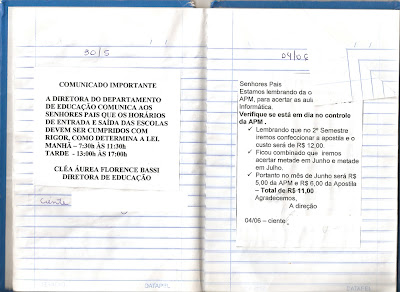 30/5
COMUNICADO IMPORTANTE
A DIRETORA DO DEPARTAMENTO
DE EDUCAÇÃO COMUNICA AOS
SENHORES PAIS QUE OS HORÁRIOS
DE ENTRADA E SAÍDA DAS ESCOLAS
DEVEM SER CUMPRIDOS COM
RIGOR, COMO DETERMINA A LEI.
MANHÃ – 7:30h ÀS 11:30h
TARDE - 13:00h ÀS 17:00h
CLÉA ÁUREA FLORENCE BASSI
DIRETORA DE EDUCAÇÃO
Ciente
04/06
Senhores Pais
Estamos lembrando da o
APM, para acertar as aul
Informática.
Verifique se está em dia no controle
da APM .
✓ Lembrando que no 2º Semestre
iremos confeccionar a apostila e o
custo será de R$ 12,00.
✓ Ficou combinado que iremos
acertar metade em Junho e metade
em Julho.
✓ Portanto no mês de Junho será R$
5,00 da APM e R$ 6,00 da Apostila
– Total de R$ 11,00
Agradecemos,
A direção
04/06 – ciente